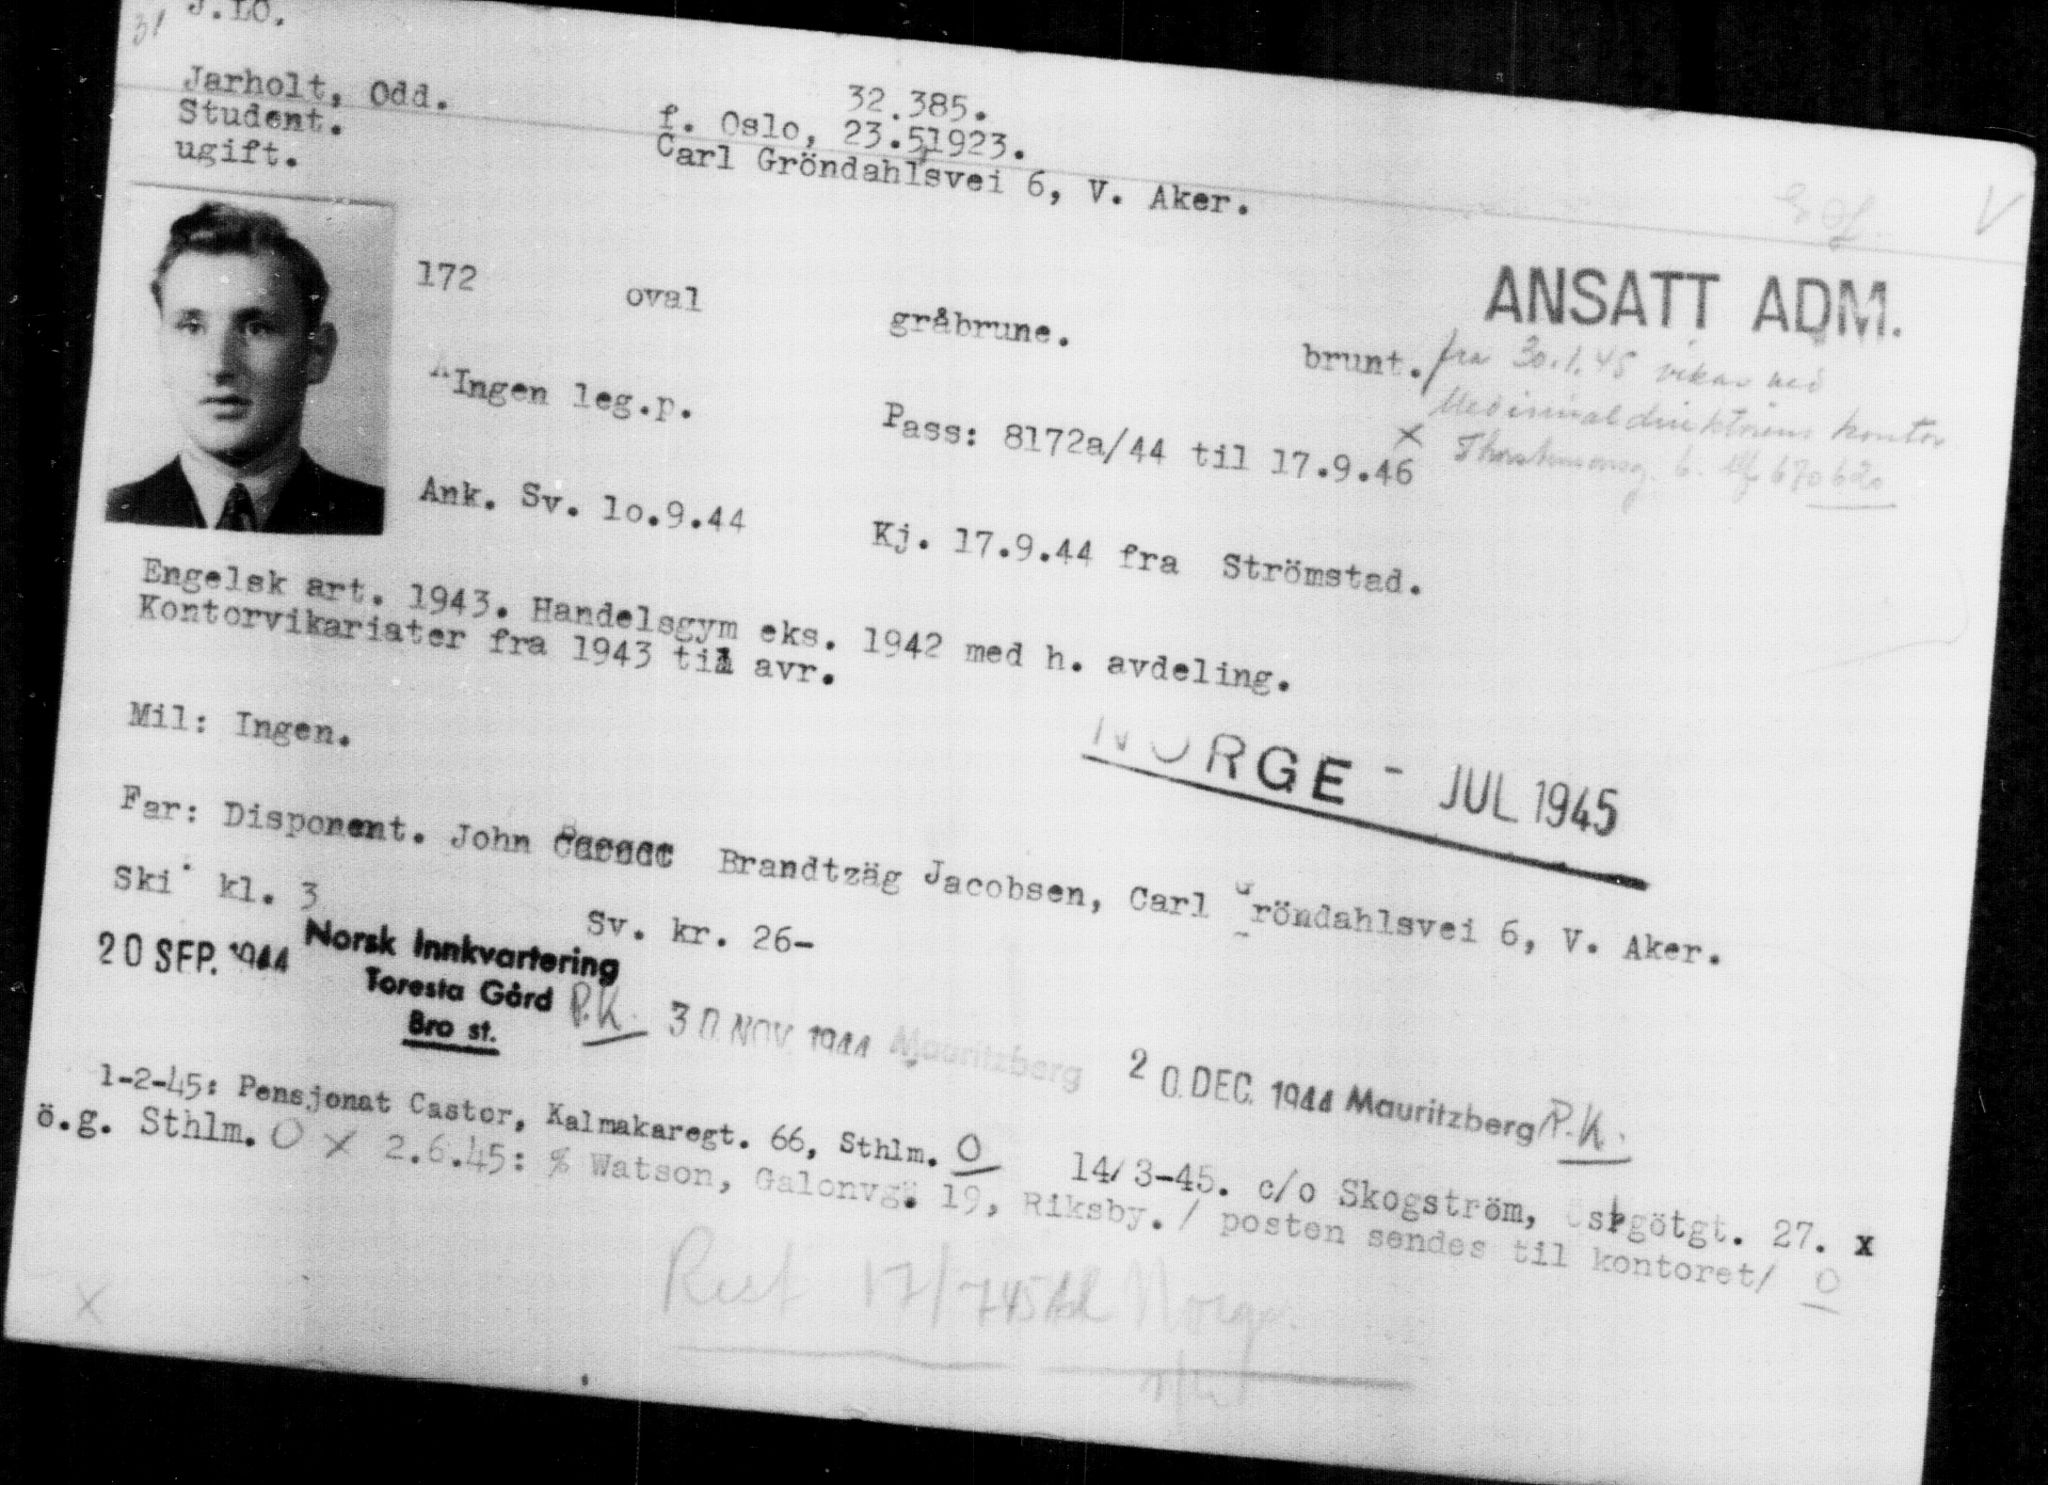 31 J.LO.
Jarholt, Odd.
32.385.
Student.
f. Oslo, 23.5.1923.
ugift.
Carl Gröndahlsvei 6, V. Aker.
ANSATT ADM.
172 oval gråbrune. brunt.
fra 30.1.45 vikar ved
Medisinaldirektörens kontor
Ingen leg.p. Pass: 8172a/44 til 17.9.46
x
Ank. Sv. lo.9.44 Kj. 17.9.44 fra Strömstad.
Engelsk art. 1943. Handelsgym eks. 1942 med h. avdeling.
Kontorvikariater fra 1943 til avr.
Mil: Ingen.
NORGE - JUL 1945
Far: Disponent. John Brandtzäg Jacobsen, Carl Gröndahlsvei 6, V. Aker.
Ski kl. 3 Sv. kr. 26-
20 SEP. 1944 Norsk Innkvartering
Toresta Gård
Bro st.
P.K. 30 NOV. 1944 Mauritzberg 20. DEC. 1944 Mauritzberg P.K.
1-2-45: Pensjonat Castor, Kalmakaregt. 66, Sthlm. O 14/3-45. c/o Skogström, Östgötgt. 27. x
ö.g. Sthlm. O x 2.6.45: % Watson, Galonvg. 19, Riksby. / posten sendes til kontoret/ O
Reist 17/7 45 til Norge.
x